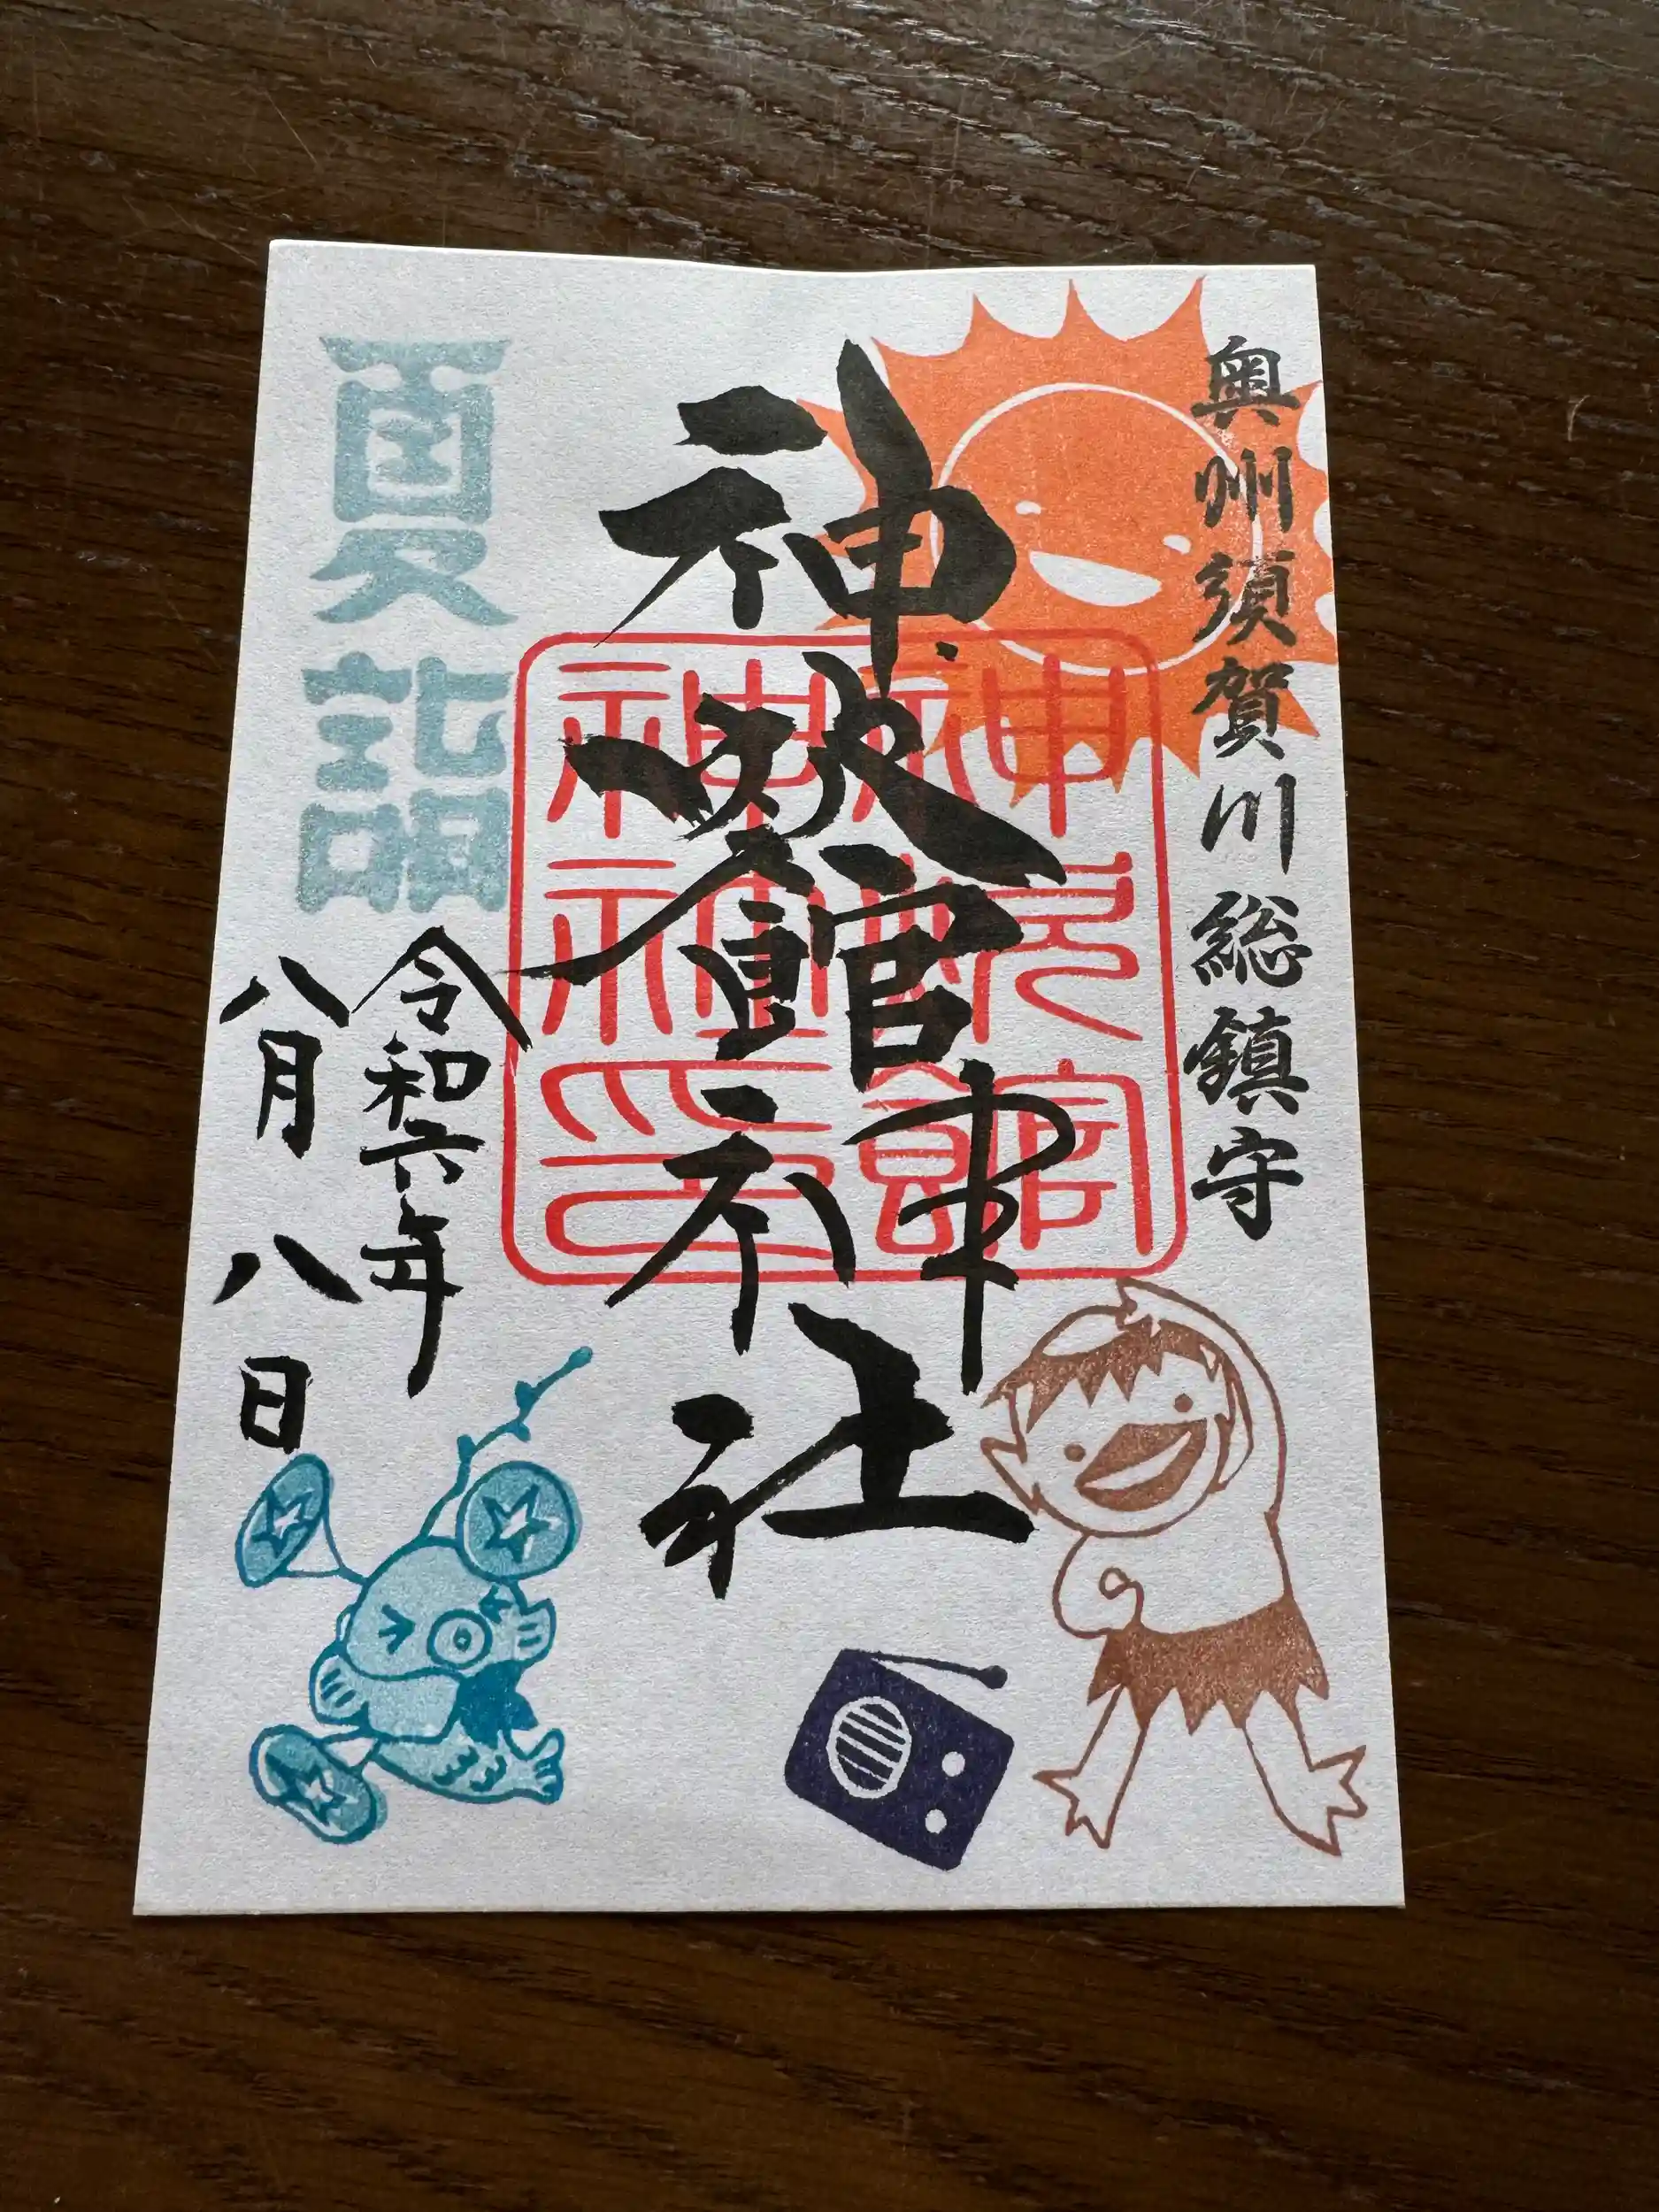 奥州須賀川総鎮守
神炊館神社
神炊館
神社印
夏詣
令和六年
八月八日